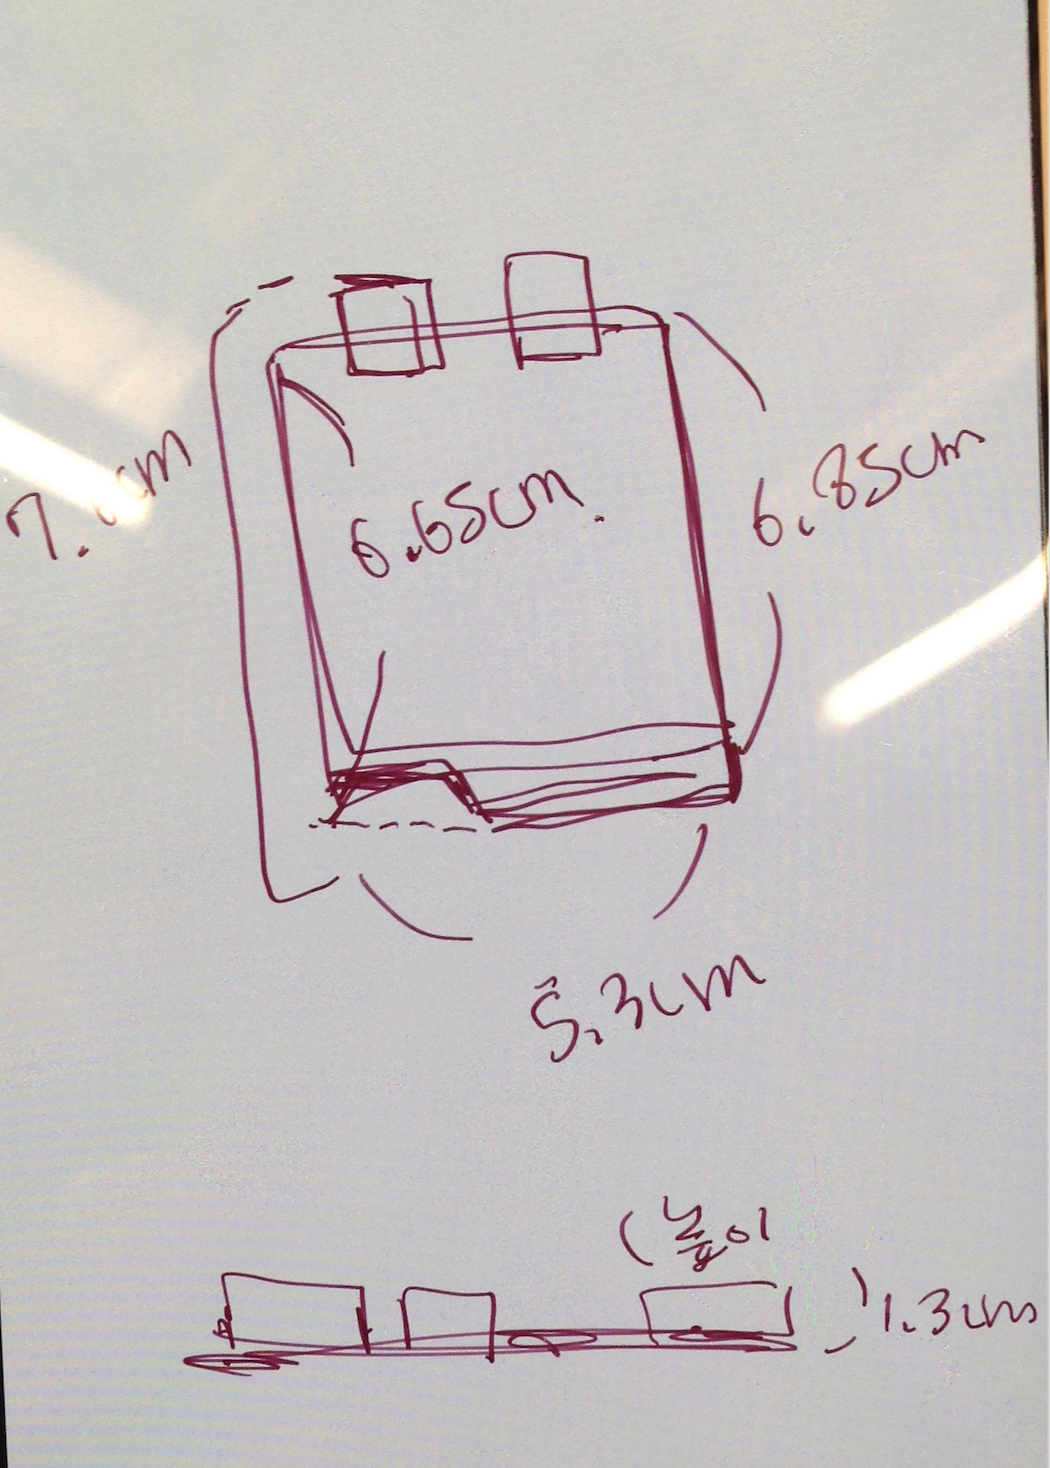 6.65cm.
6.85cm
5.3cm
(높이
1.3cm